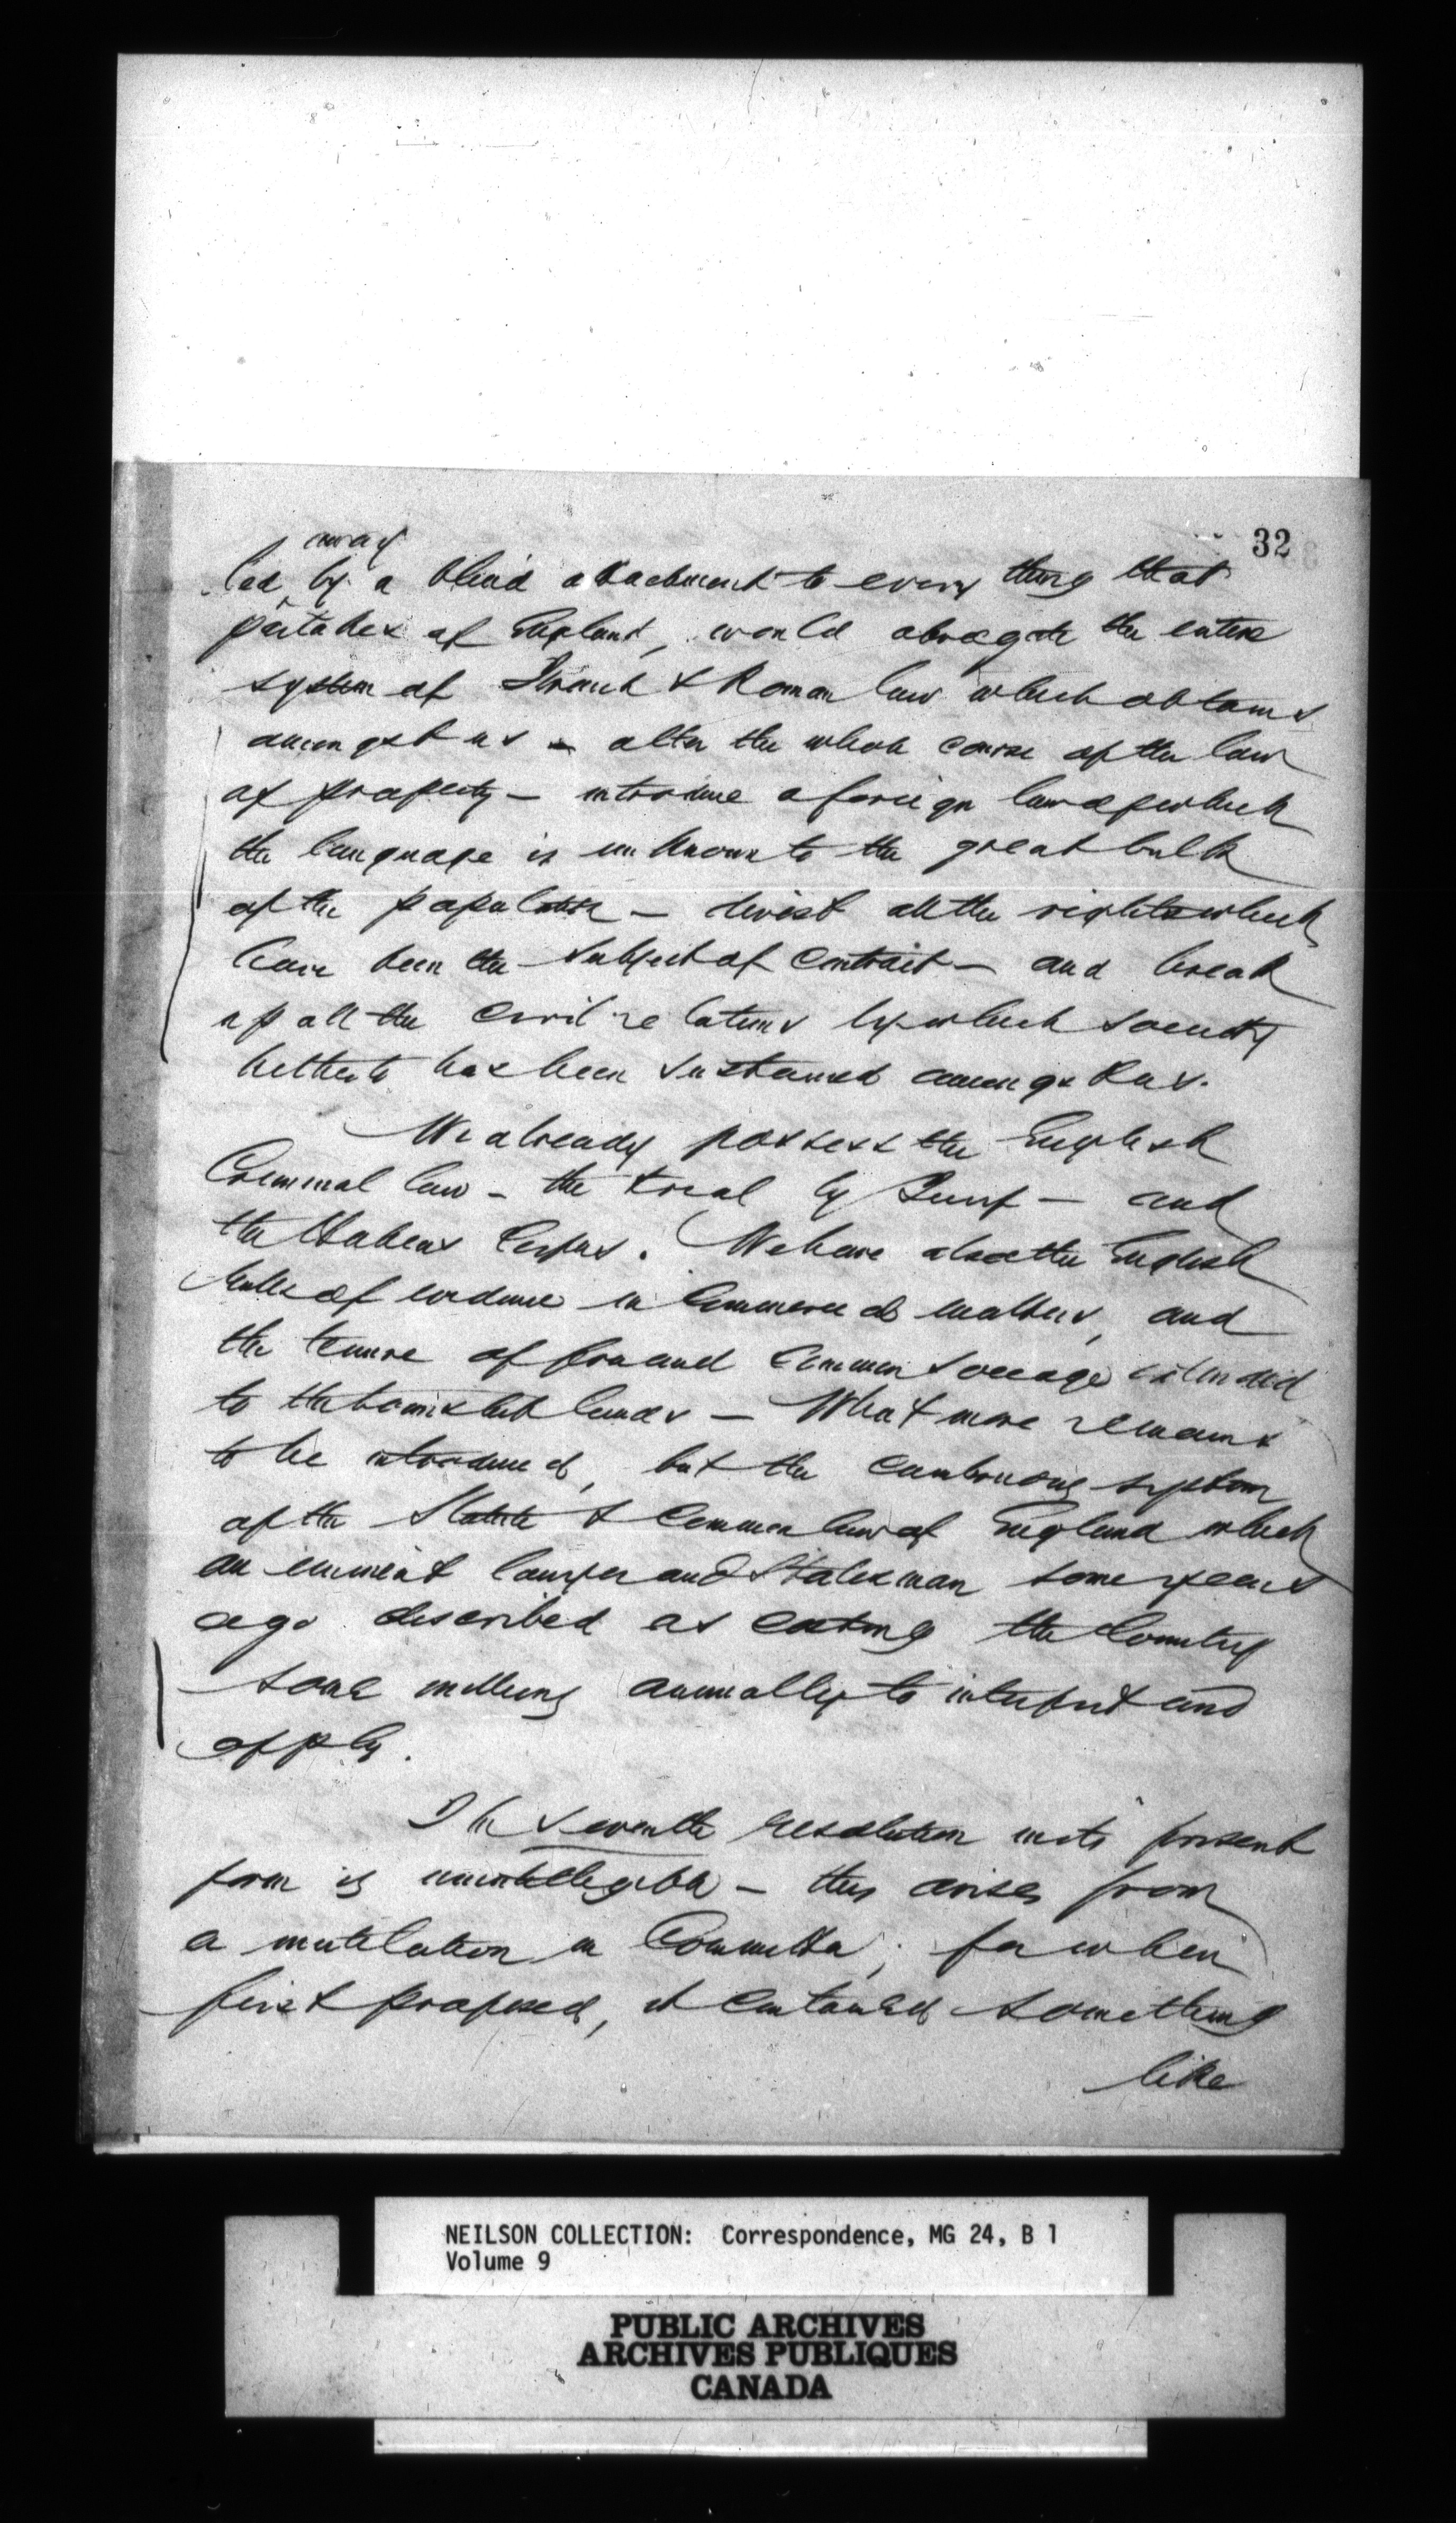 32
away
led by a blind attachment to every thing that
partakes of England, would abrogate the entire
system of French & Roman law which obtains
amongst us - alter the whole course of the law
of property - introduce a foreign law of which
the language is unknown to the great bulk
of the population - divest all the rights which
have been the subject of contract - and break
up all the civil relations by which society
hitherto has been sustained amongst us.
We already possess the English
Criminal law - the trial by Jury - and
the Habeas Corpus. We have also the English
Rules of evidence in Commercial matters, and
the tenure of free and Common soccage extended
to the township lands - What more remains
to be introduced, but the cumbrous system
of the Statute & Common law of England which
an eminent lawyer and Statesman some years
ago described as costing the Country
some millions annually to interpret and
apply.
The seventh resolution in its present
form is unintelligible - this arises from
a mutilation in Committee; for when
first proposed, it contained something
like
NEILSON COLLECTION: Correspondence, MG 24, B 1
Volume 9
PUBLIC ARCHIVES
ARCHIVES PUBLIQUES
CANADA